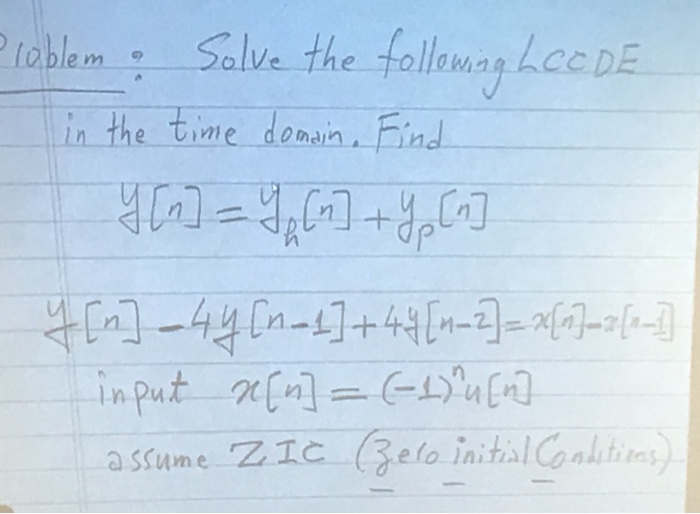 Problem : Solve the following LCCDE
in the time domain. Find
y[n] = y_h[n] + y_p[n]
y[n] - 4y[n-1] + 4y[n-2] = x[n] - x[n-1]
input x[n] = (-1)^n u[n]
assume ZIC (Zero initial Conditions)